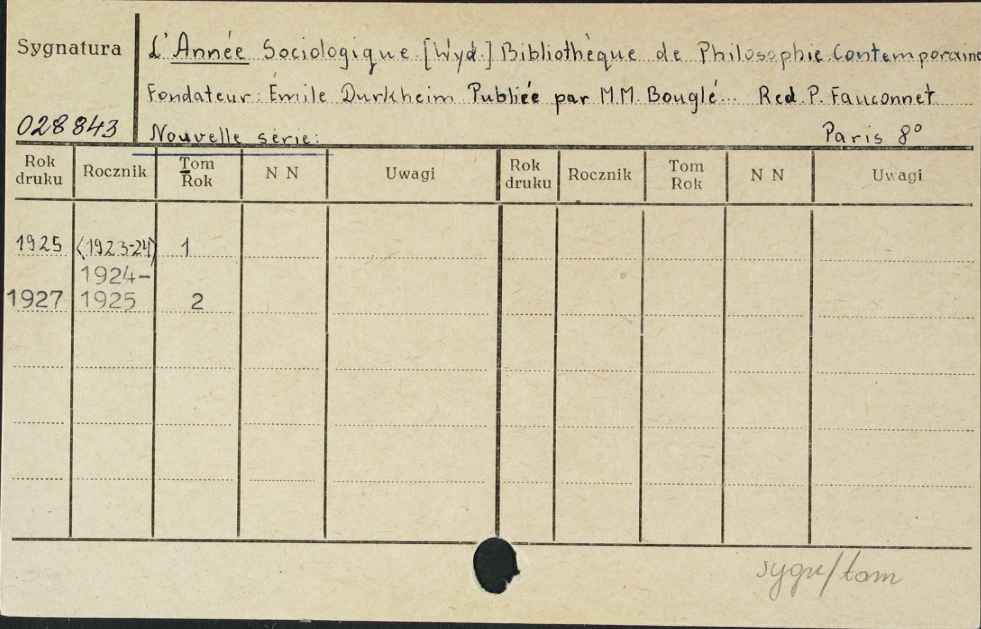 Sygnatura
L'Année Sociologique. [Wyd.] Bibliothèque de Philosophie Contemporaine
Fondateur: Émile Durkheim Publiée par M.M. Bouglé... Red. P. Fauconnet
028843 Nouvelle série: Paris 8°
Rok druku Rocznik Tom Rok N N Uwagi Rok druku Rocznik Tom Rok N N Uwagi
1925 (1923-24) 1
1924-
1927 1925 2
sygn/tom